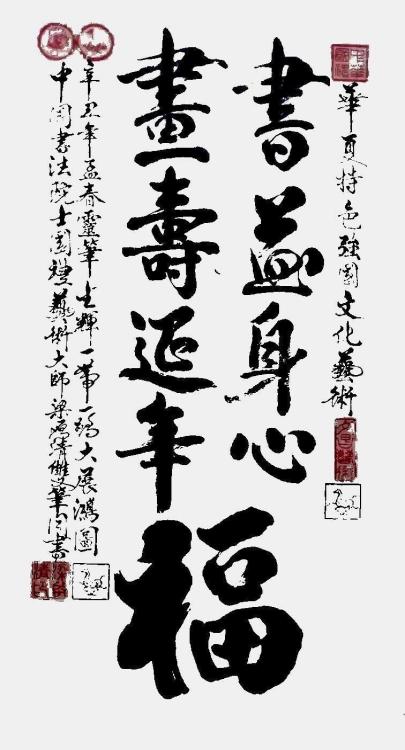 華夏特色強國文化藝術
書益身心
畫壽延年
福
辛丑年孟春靈筆生輝一帶一路大展鴻圖
中國書法院士國禮藝術大師梁雙筆同書